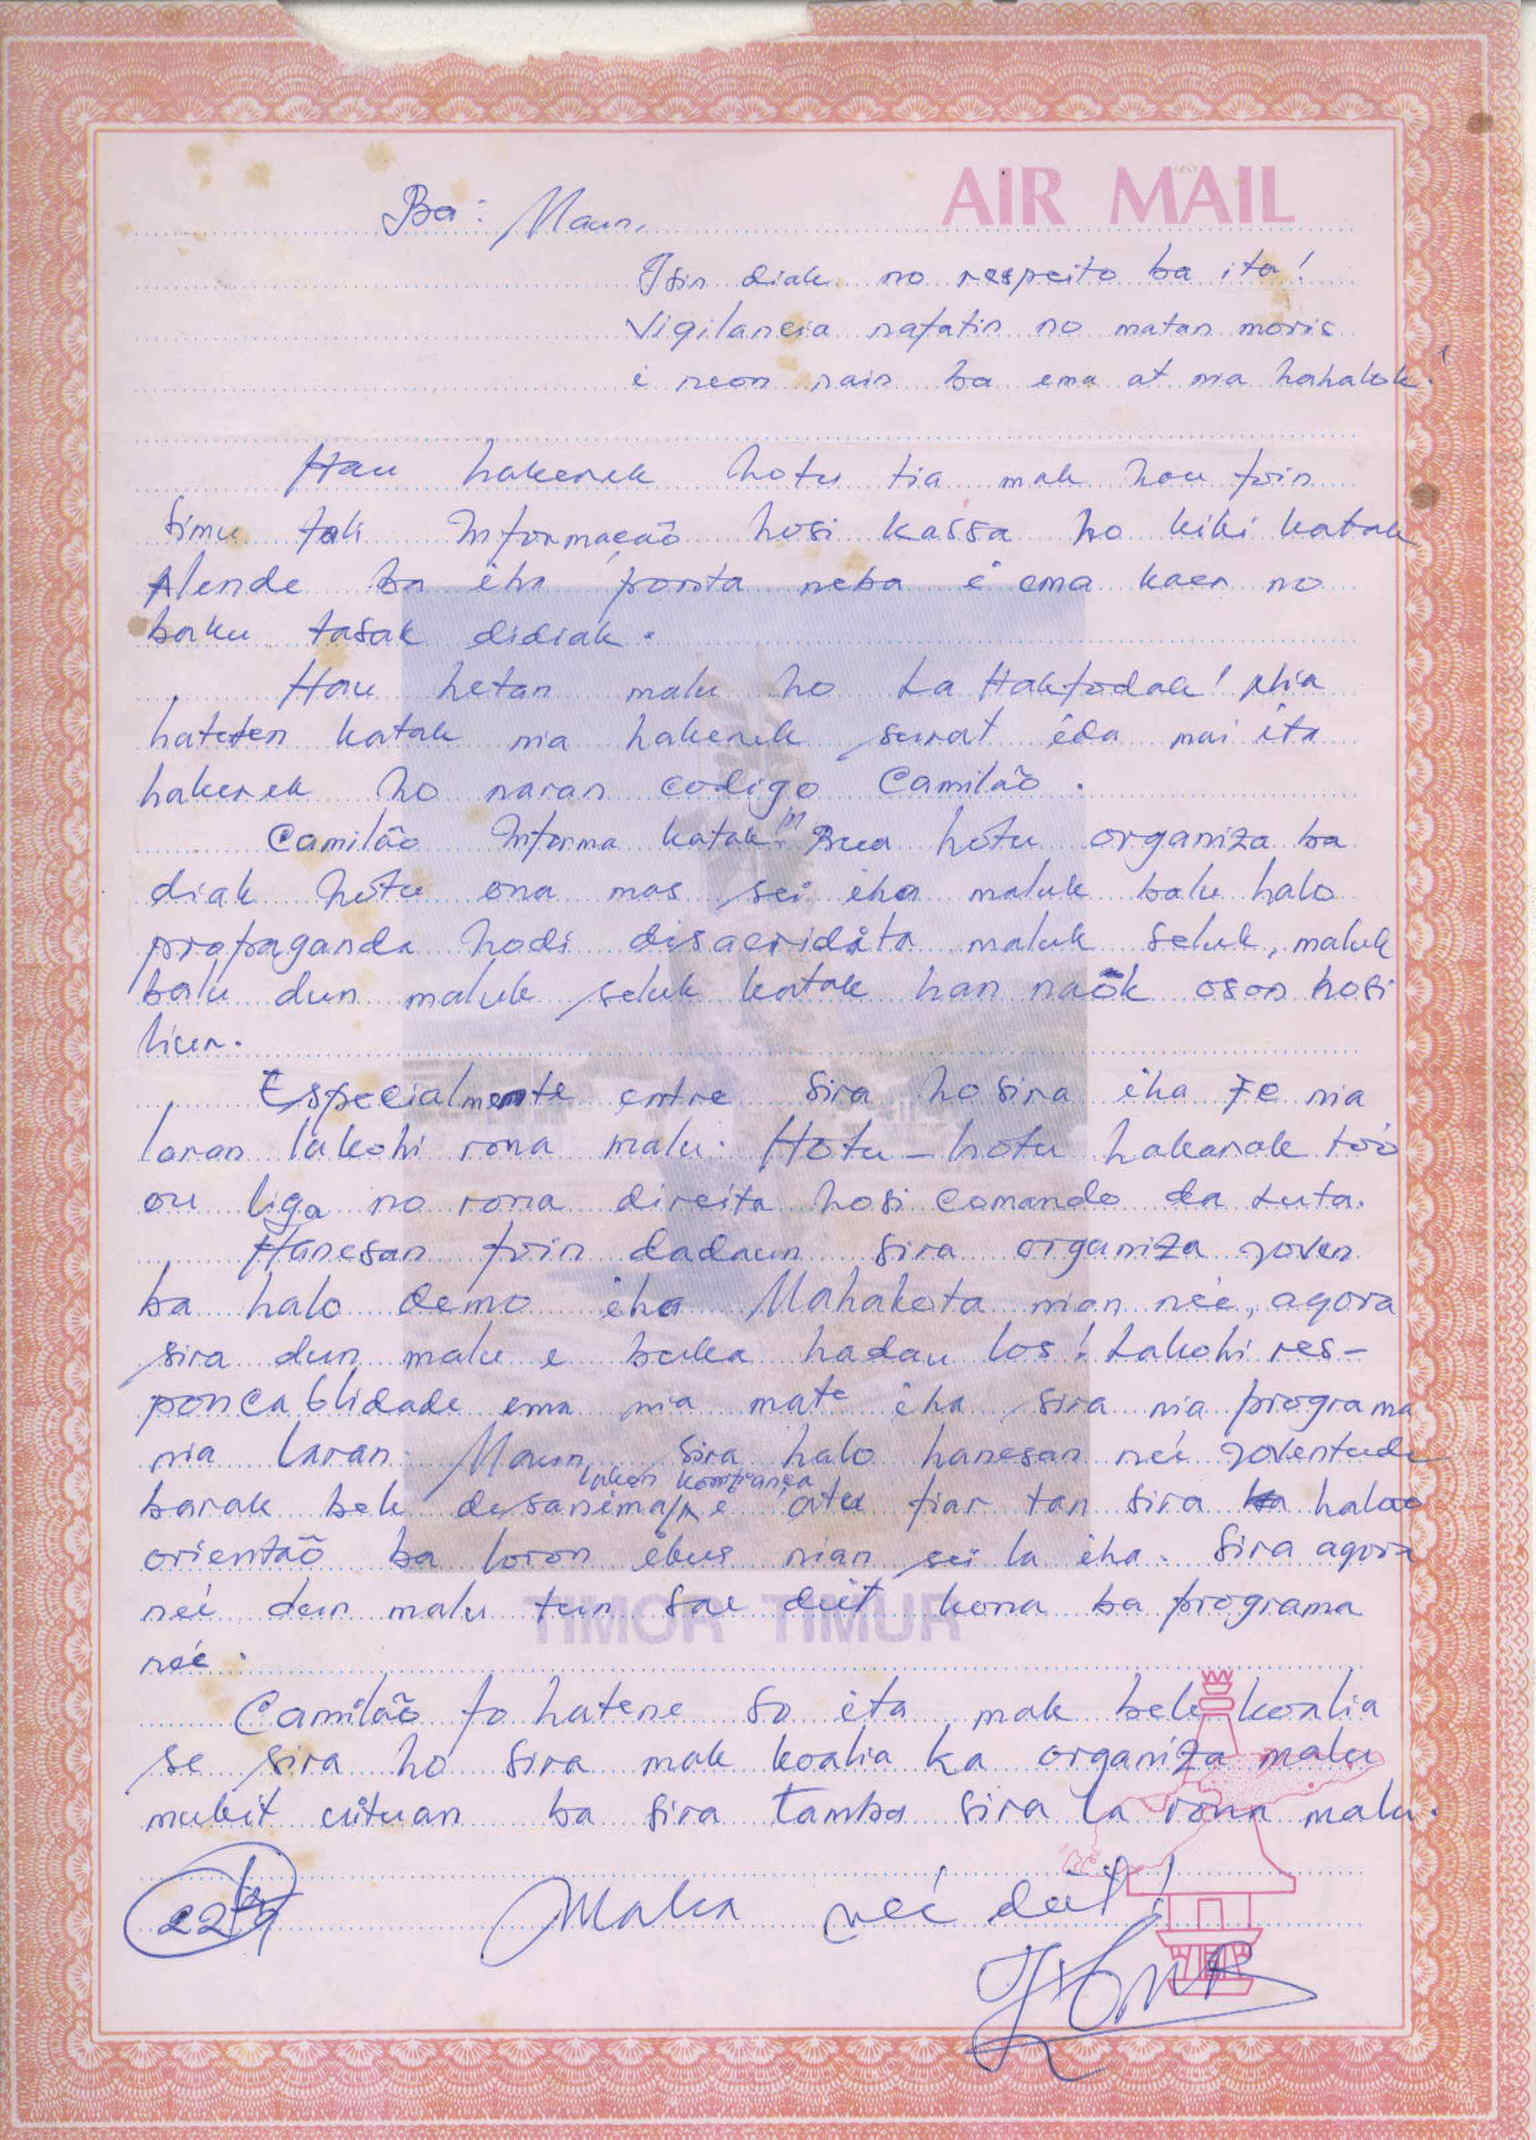 AIR MAIL
Ba: Maun,
Isin diak no respeito ba ita!
Vigilancia nafatin no matan moris
e neon nain ba ema at nia hahalok!
Hau hakerek hotu tia mak hou foin
simu tali Informação hosi kassa ho kiki katak
Alende ba iha ponta neba e ema kaer no
baku tasak didiak.
Hau hetan malu ho La Hakfodak! Nia
hateten katak nia hakerek surat ida mai ita
hakerek ho naran codigo Camilão.
Camilão Informa katak Buca hotu organiza ba
diak hotu ona mas sei iha maluk balu halo
propaganda hodi disacridita maluk seluk, maluk
balu dun maluk seluk katak han naõk osan hosi
liur.
Especialmente entre sira ho sira iha Fe nia
laran lakohi rona malu. Hotu-hotu hakarak too
ou liga no rona direita hosi Comando da Luta.
Hanesan foin dadaun sira organiza joven
ba halo demo iha Mahakota nian neé, agora
sira dun malu e buka hadau los! Lakohi res-
poncablidade ema nia mate iha sira nia programa
nia laran. Maun, sira halo hanesan neé joventude
lakon komfiança
barak bele desanima e atu fiar tan sira halao
orientaõ ba loron ikus nian sei la iha. Sira agora
neé dun malu tun sae deit kona ba programa
neé.
TIMOR TIMUR
Camilão fo hatene so ita mak bele koalia
se sira ho sira mak koalia ka organiza malu
mukit uituan ba sira tamba sira la rona malu.
22/9
Maka neé deit!